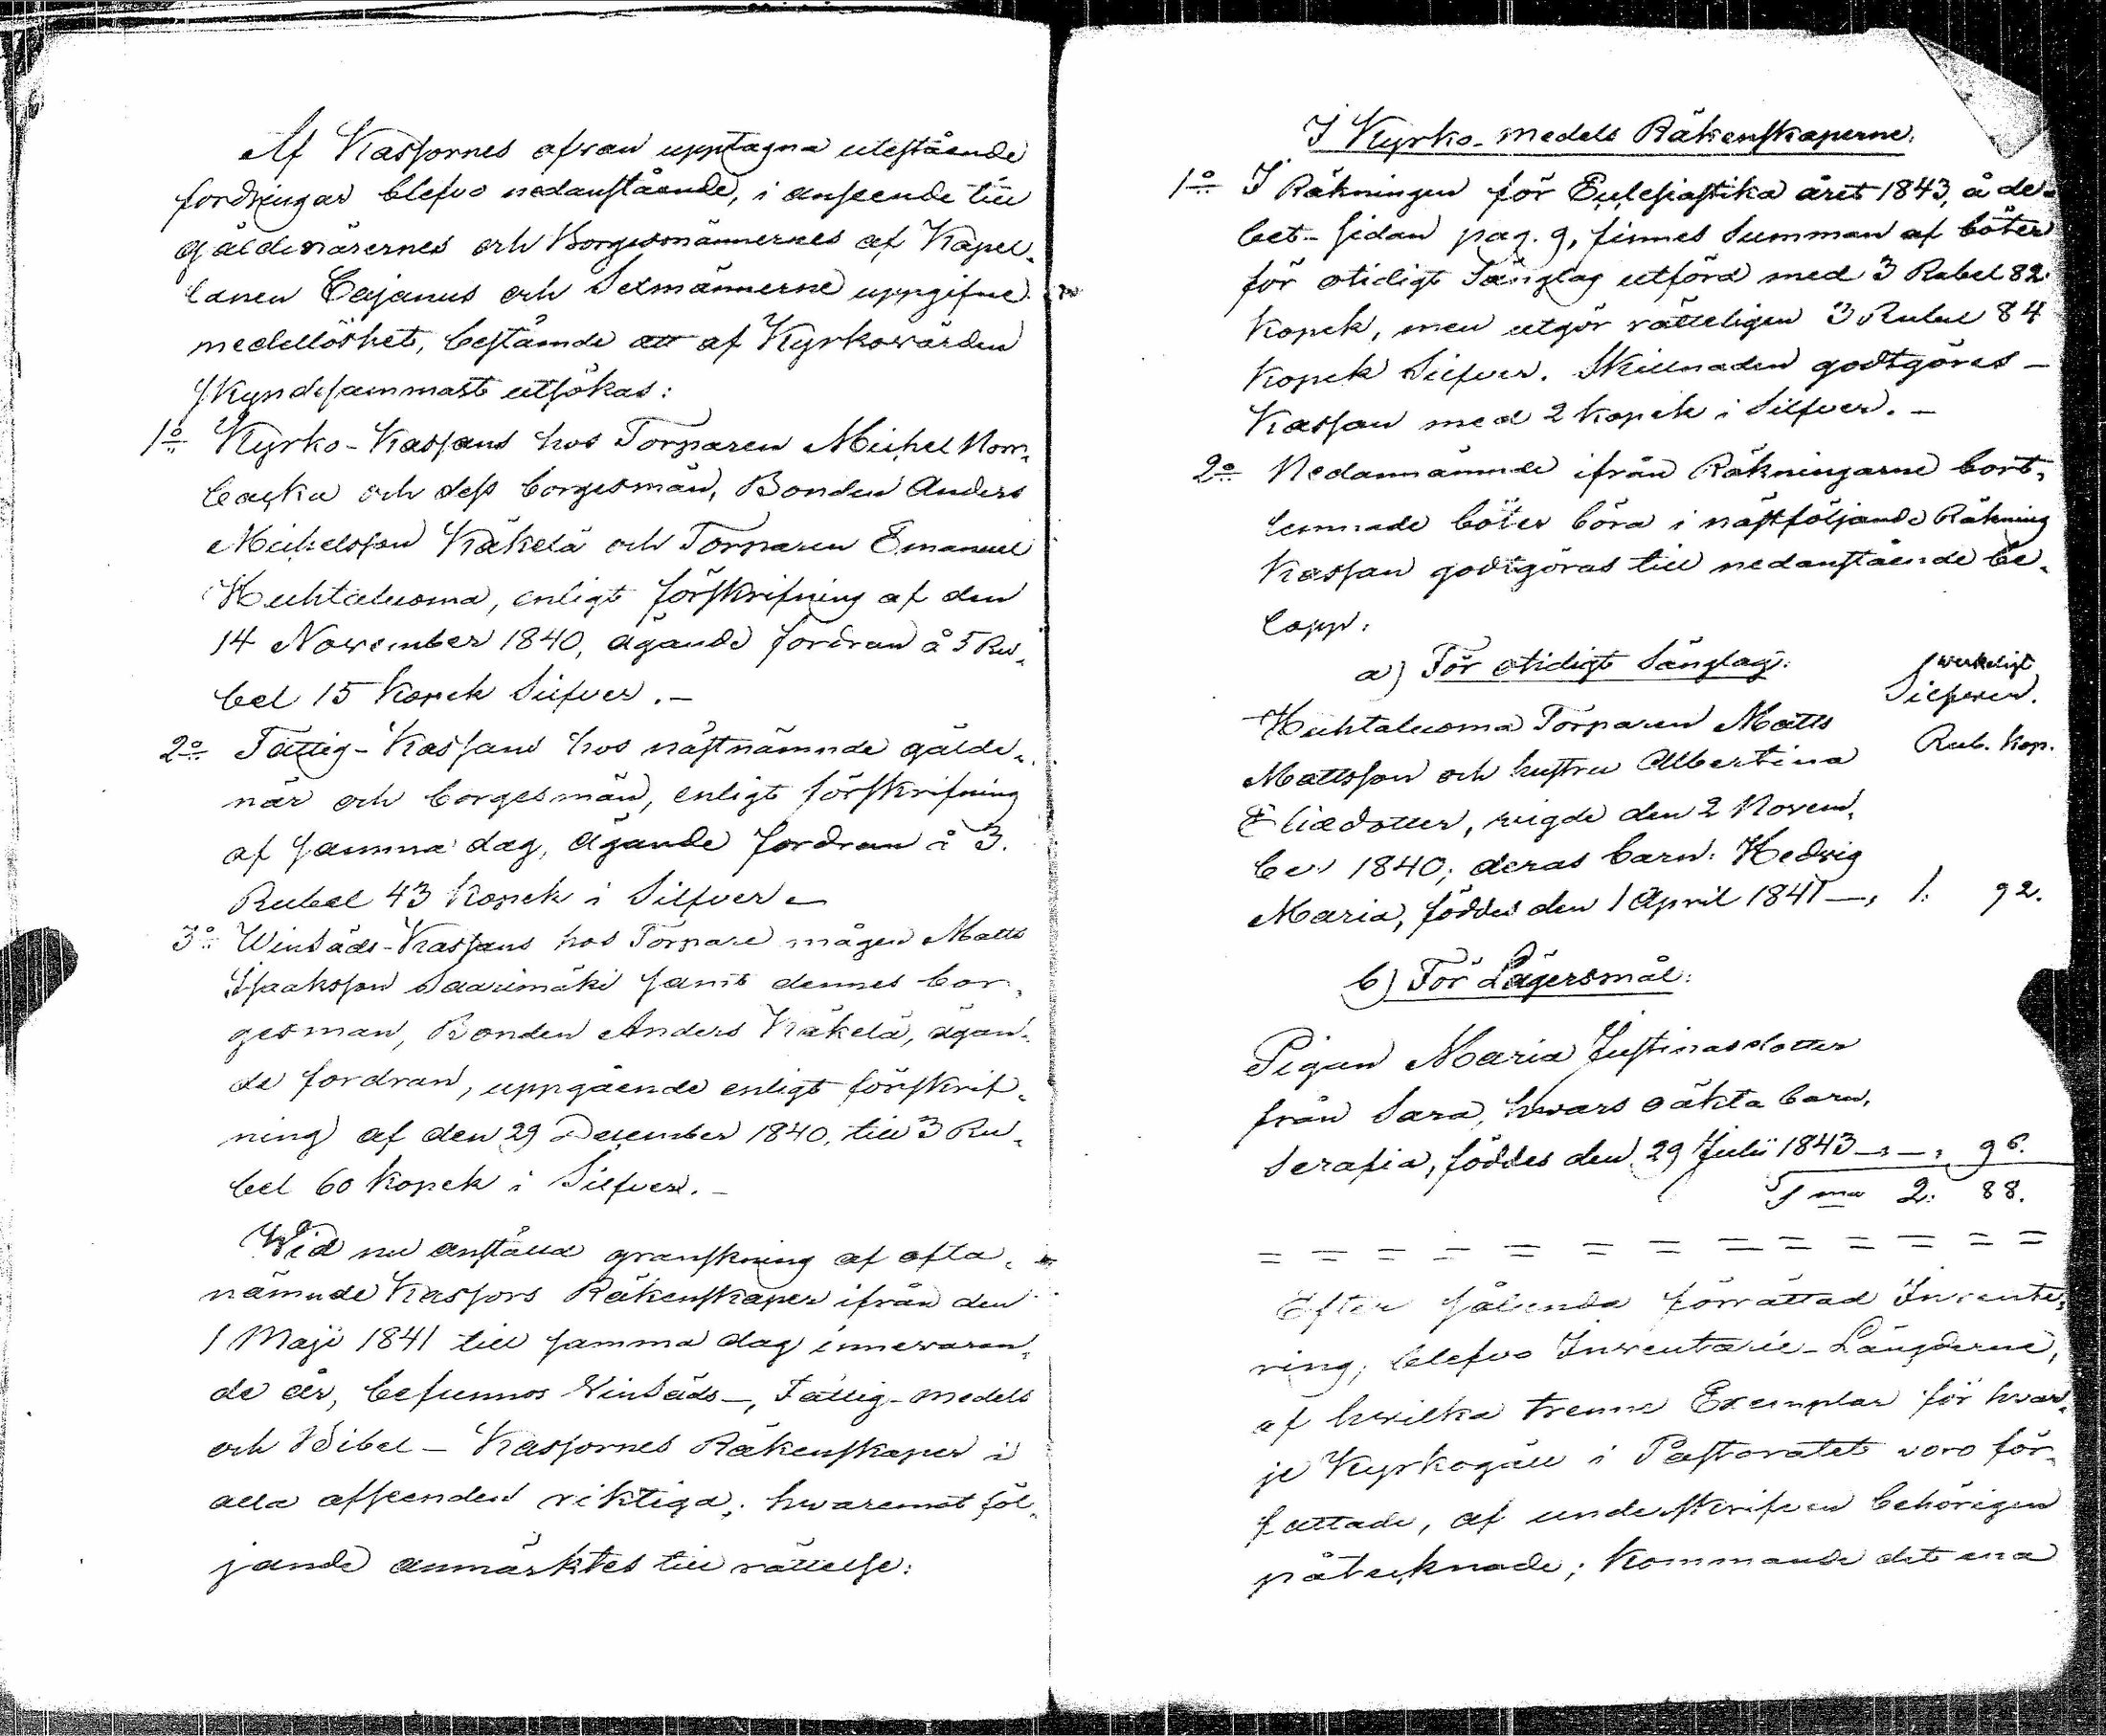 Af Kassornes ofvan upptagna utestående
fordringar blefvo nedanstående, i anseende till
gäldenärernes och Borgesmännernes af Kapel-
lanen Cajanus och Sexmännerne uppgifne
medellöshet, bestämde att af Kyrkovärden
skyndesammast utsökas:
1o Kyrko-Kassans hos Torparen Michel Norr-
backa och dess borgesmän, Bonden Anders
Michelsson Käkelä och Torparen Emanuel
Huhtaluoma, enligt förskrifning af den
14 November 1840, ägande fordran å 5 Ru-
bel 15 Kopek Silfver.-
2o Fattig-Kassans hos nästnämnde gälde-
när och borgesmän, enligt förskrifning
af samma dag, ägande fordran å 3.
Rubel 43 Kopek i Silfver.-
3o Winsäds-Kassans hos Torpare mågen Matts
Isaaksson Saarimäki samt dennes bor-
gesman, Bonden Anders Käkelä, ägan-
de fordran, uppgående enligt förskrif-
ning af den 29 December 1840, till 3 Ru-
bel 60 Kopek i Silfver.-
Wid nu anställd granskning af ofta-
nämnde Kassors Räkenskaper ifrån den
1 Maji 1841 till samma dag innevaran-
de år, befunnos Vinsäds-, Fattig-medels
och Bibel-Kassornes Räkenskaper i
alla afseenden riktiga; hvaremot föl-
jande anmärktes till rättelse:
I Kyrko-medels Räkenskaperne:
1o I Räkningen för Ecclesiastika året 1843, å de-
bet-sidan pag. 9, finnes Summan af böter
för otidigt Sänglag utförd med 3 Rubel 82
Kopek, men utgör rätteligen 3 Rubel 84
Kopek Silfver. Skillnaden godtgöres
Kassan med 2 Kopek i Silfver.-
2o Nedannämnde ifrån Räkningarne bort-
lemnade böter böra i nästföljande Räkning
Kassan godtgöras till nedanstående be-
lopp:
a) För otidigt Sänglag: werkeligt
Silfver.
Huhtaluoma Torparen Matts
Mattsson och hustru Albertina Rub. Kop.
Eliædotter, vigde den 2 Novem-
ber 1840; deras barn: Hedvig
Maria, föddes den 1 April 1841 —, 1. 92.
b) För Lägersmål:
Pigan Maria Justinasdotter
från Sara, hvars oäkta barn,
Serafia, föddes den 29 Julii 1843 —,—, 96.
Sma 2: 88.
= = = = = = = = = = = = =
Efter sålunda förrättad Invente-
ring, blefvo Inventarie-Längderne,
af hvilka trenne Exemplar för hvar-
je Kyrkogäll i Pastoratet voro för-
fattade, af underskrifven behörigen
påtecknade; Kommande det ena